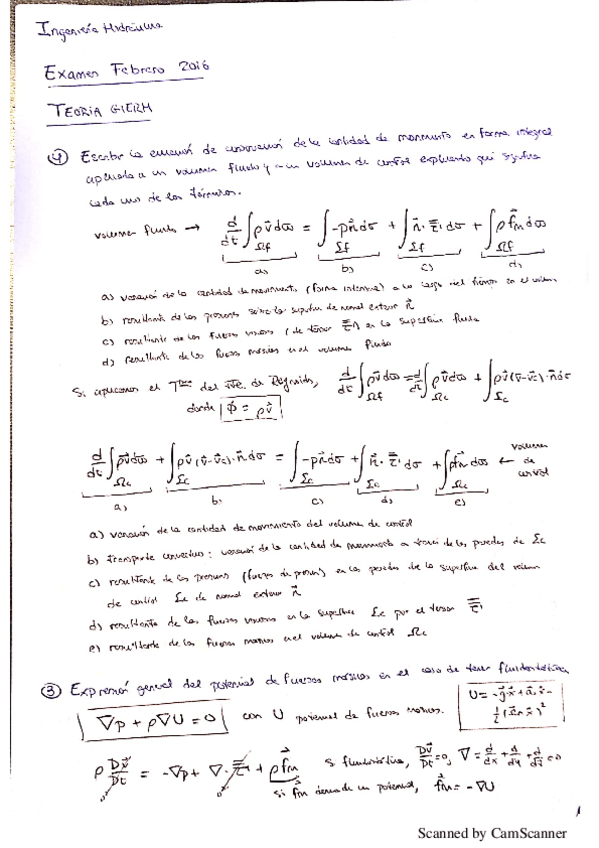 Ingeniería Hidráulica
Examen Febrero 2016
TEORÍA GIERM
④ Escribir la ecuación de conservación de la cantidad de movimiento en forma integral
aplicada a un volumen fluido y a un volumen de control explicando qué significa
cada uno de los términos.
volumen fluido → d/dt ∫_Ωf ρv⃗dω = ∫_Σf -pn⃗dσ + ∫_Σf n⃗·τ̿'dσ + ∫_Ωf ρf⃗m dω
a) b) c) d)
a) variación de la cantidad de movimiento (forma intensiva) a lo largo del tiempo en el volumen
b) resultante de las presiones sobre la superficie de normal exterior n⃗
c) resultante de las fuerzas viscosas (de tensor τ̿') en la superficie fluida
d) resultante de las fuerzas másicas en el volumen fluido
Si aplicamos el Tma del Tte. de Reynolds, d/dt ∫_Ωf ρv⃗dω = d/dt ∫_Ωc ρv⃗dω + ∫_Σc ρv⃗(v⃗-v⃗c)·n⃗dσ
donde ϕ = ρv⃗
d/dt ∫_Ωc ρv⃗dω + ∫_Σc ρv⃗(v⃗-v⃗c)·n⃗dσ = ∫_Σc -pn⃗dσ + ∫_Σc n⃗·τ̿'dσ + ∫_Ωc ρf⃗m dω ← volumen de control
a) b) c) d) e)
a) variación de la cantidad de movimiento del volumen de control
b) transporte convectivo: variación de la cantidad de movimiento a través de las paredes de Σc
c) resultante de las presiones (fuerzas de presión) en las paredes de la superficie del volumen
de control Σc de normal exterior n⃗
d) resultante de las fuerzas viscosas en la superficie Σc por el tensor τ̿'
e) resultante de las fuerzas másicas en el volumen de control Ωc
③ Expresión general del potencial de fuerzas másicas en el caso de tener fluidostática
∇p + ρ∇U = 0 con U potencial de fuerzas másicas. U = -g⃗·x⃗ + a⃗·x⃗ - ½(Ω⃗∧x⃗)²
ρ Dv⃗/Dt = -∇p + ∇·τ̿' + ρf⃗m si fluidostática, Dv⃗/Dt = 0, ∇ = d/dx + d/dy + d/dz = 0
si f⃗m deriva de un potencial, f⃗m = -∇U
1
Scanned by CamScanner